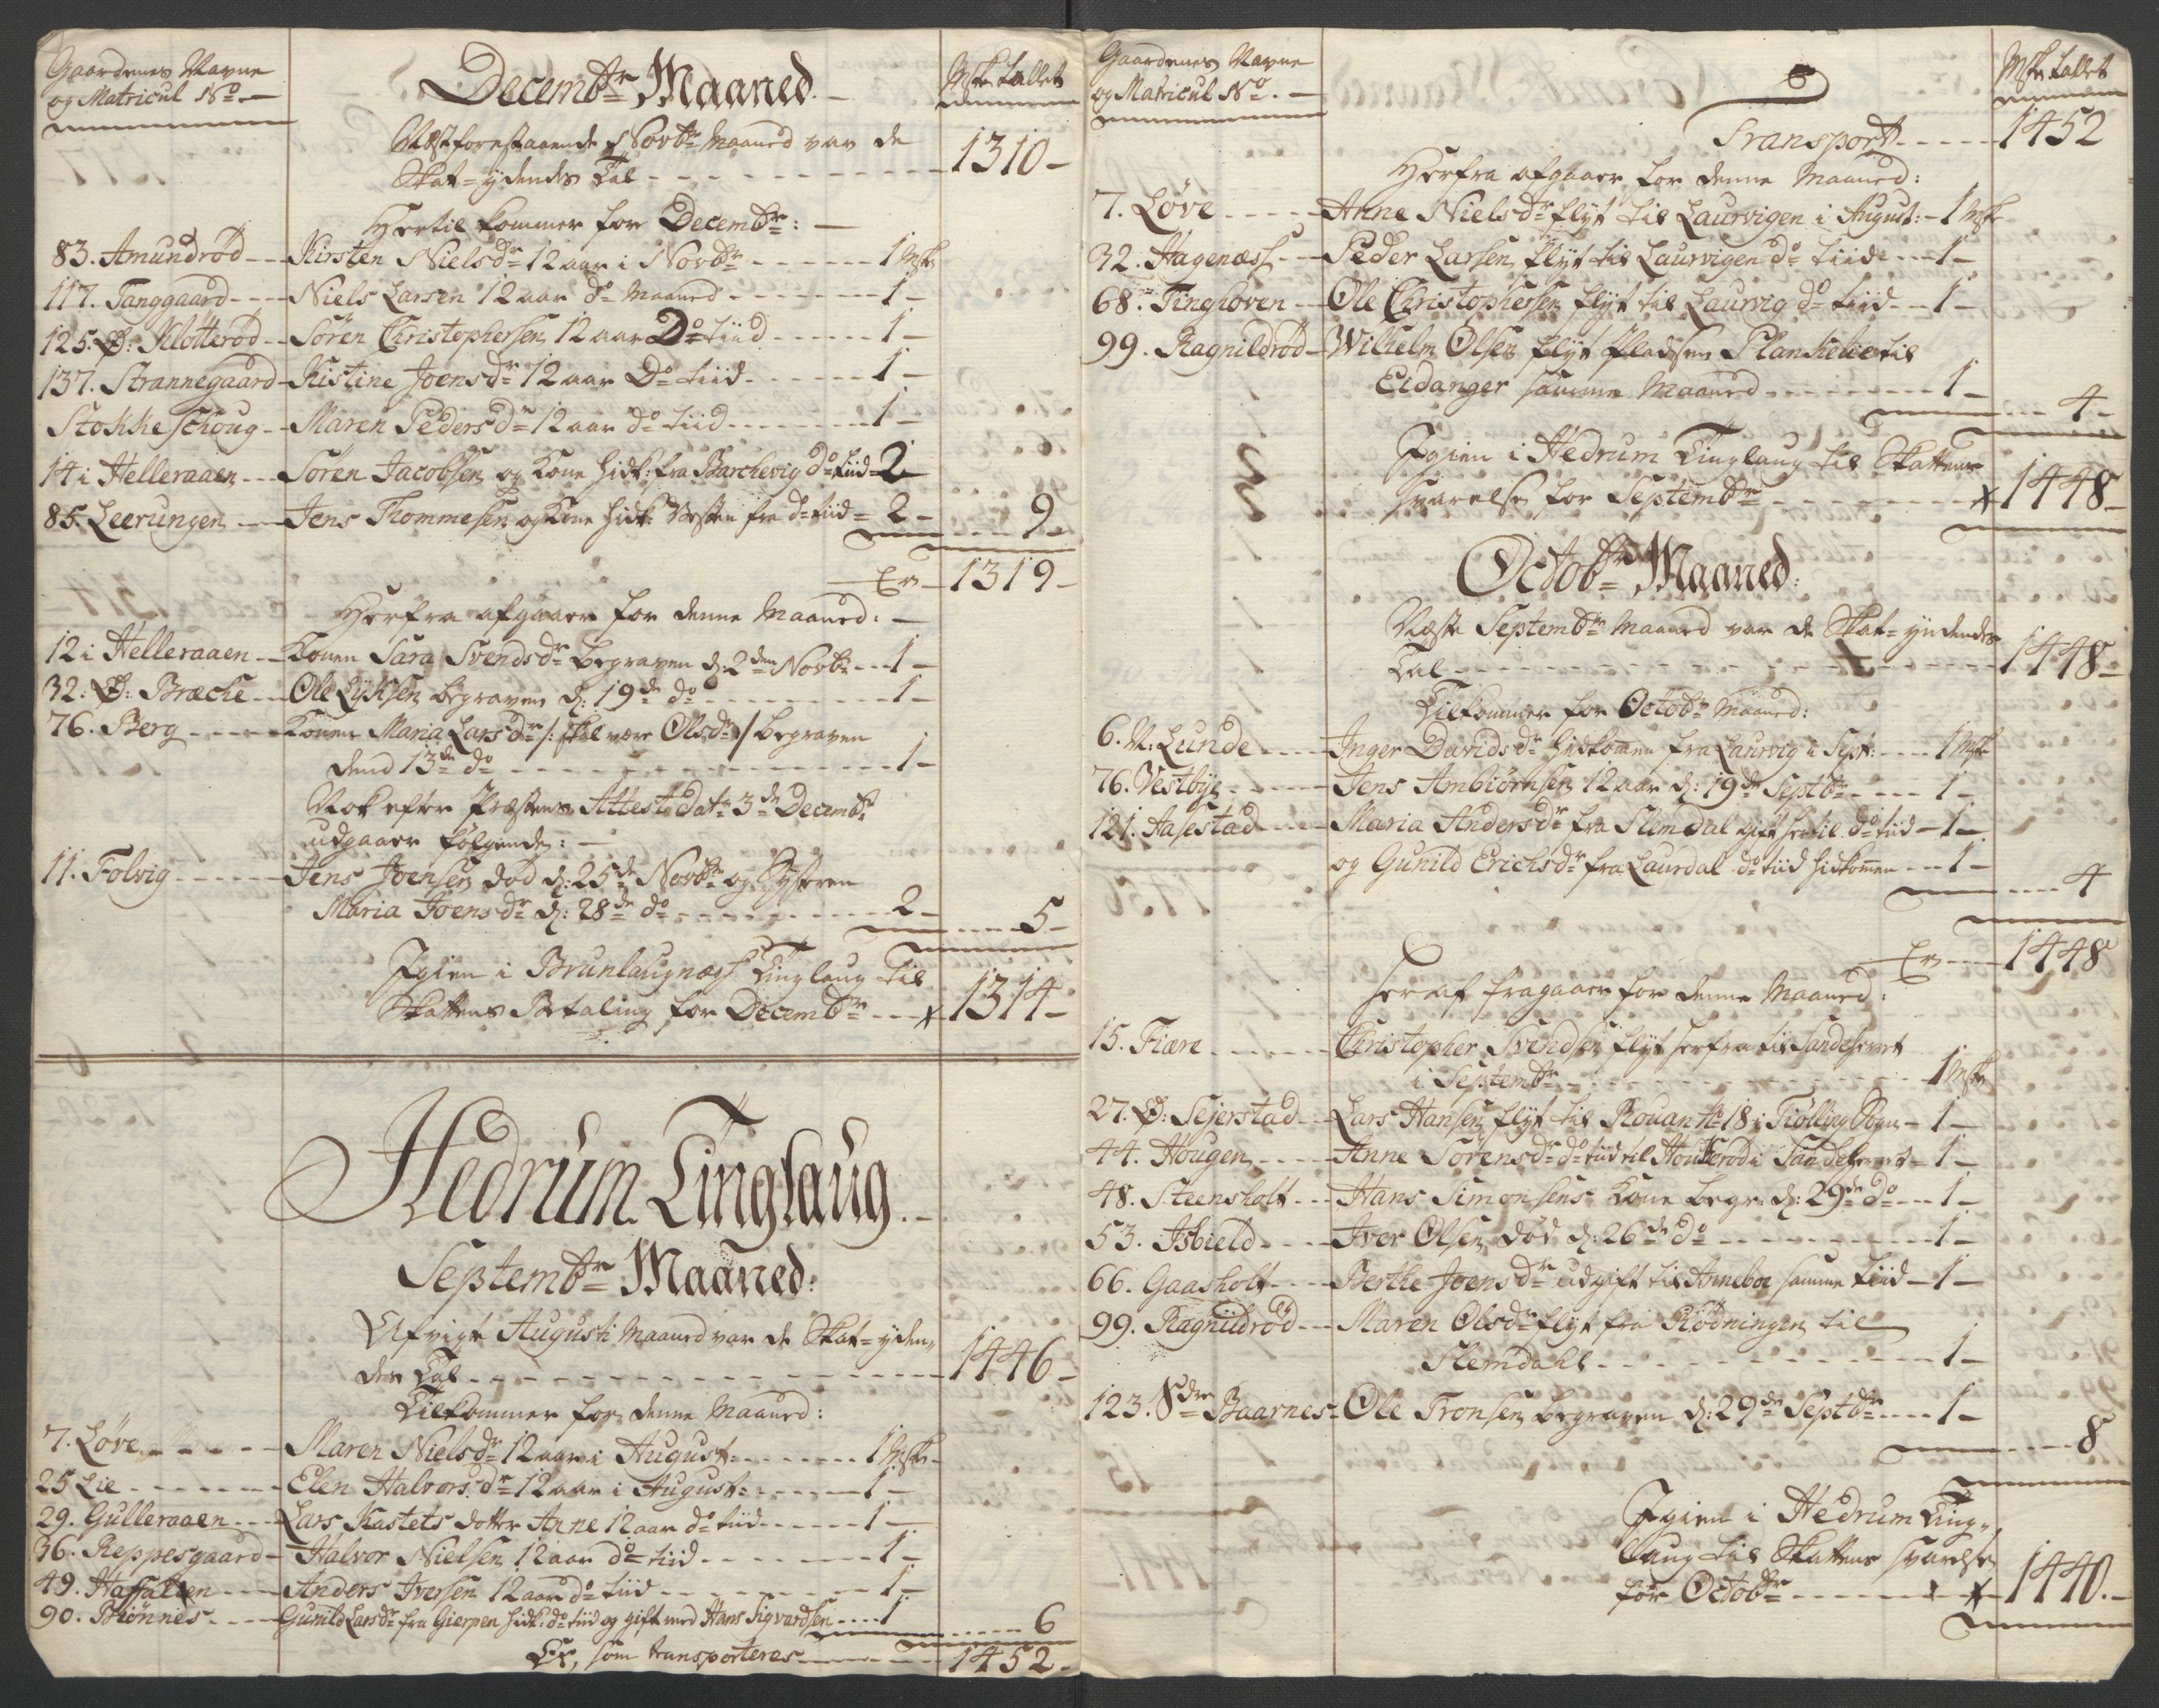 Gaardenes Navne
og Matricul No.
Decembr Maaned.
Mske tallet
Næstforestaaende Novbr Maaned var de
Skat-ydendes Tal - - - 1310 -
Hertil kommer for Decembr:
83. Amundrød - - Kirsten Nielsdr 12 aar i Novbr - - - 1 Mske
117. Tanggaard - - - Niels Larsen 12 aar do Maaned - - - 1 -
125. Ø: Klötterød - - Sören Christophersen 12 aar Do tiid - - - 1 -
137. Strannegaard - Kistine Joensdr 12 aar Do tiid - - - 1 -
Stokke schoug - - Maren Pedersdr 12 aar do tiid - - - 1 -
14 i Helleraaen - - - Sören Jacobsen og Kone hidk: fra Barchevig do tiid = 2
85. Leerungen - - Jens Thommesen og Kone hidk: Vesten fra do tiid = 2 - - - 9 -
Er - 1319 -
Herfra afgaaer for denne Maaned:
12 i Helleraaen - - Konen Sara Svendsdr begraven d: 2den Novbr - - 1 -
32. Ø: Bræche - - Ole Lyksen begraven d: 19de do - - - 1 -
76. Berg - - - Konen Maria Larsdr /: skal være Olsdr :/ begraven
dend 13de do - - - 1 -
Nok efter Præstens Attest dat: 3de Decembr
udgaaer følgende:
11. Folvig - - - Jens Joensen død d: 25de Novbr og Systeren
Maria Joensdr d: 28de do - - - 2 - - - 5 -
Igien i Brunlaugnæss Tinglaug til
Skattens Betaling for Decembr - - - 1314 -
Hedrum Tinglaug.
Septembr Maaned:
Afvigte Augusti Maaned var de Skat-yden„
des Tal - - - 1446 -
Tilkommer for denne Maaned:
7. Löve - - - Maren Nielsdr 12 aar i August: - - - 1 Mske
25 Lie - - - Elen Halvorsdr 12 aar i August: - - - 1 -
29. Gulleraaen - - - Lars Kastets dotter Anne 12 aar do tiid - - - 1 -
36. Reppesgaard - Halvor Nielsen 12 aar do tiid - - - 1 -
49. Haffallen - - - Anders Iversen 12 aar do tiid - - - 1 -
90. Biönnes - - - Gunild Larsdr fra Gierpen hidk: do tiid og gift med Hans Sigvardsen - - - 1 - - - 6
Er, som transporteres - - - 1452 -
Gaardenes Navne
og Matricul No.
Mske tallet
Transport - - - 1452
Herfra afgaaer for denne Maaned:
7. Löve - - - Anne Nielsdr flyt til Laurvigen i August: - 1 Mske
32. Hagenæss - - Peder Larsen flyt til Laurvigen do tiid - - - 1 -
68. Tinghoven - - Ole Christophersen flyt til Laurvig do tiid - - 1 -
99. Ragnildrød - Wilhelm Olsen flyt Pladsen Plankelie til
Eidanger samme Maaned - - - 1 - - - 4 -
Igien i Hedrum Tinglaug til Skattens
svarelse for Septembr - - - 1448 -
Octobr Maaned:
Næste Septembr Maaned var de Skat-yndendes
Tal - - - 1448 -
Tilkommer for Octobr Maaned:
6. N. Lunde - - - Inger Davidsdr hidkommen fra Laurvig i Sept: - - - 1 Mske
76. Vestbye - - - Jens Ambiörnsen 12 aar d: 19de Septbr - - - 1 -
121. Aasestad - - - Maria Andersdr fra Slemdal gift hertil do tiid - 1 -
og Gunild Erichsdr fra Laurdal do tiid hidkommen - - - 1 - - - 4
Er - - - 1448
heraf fragaaer for denne Maaned:
15. Fiære - - - Christopher Svendsen flyt herfra til Sandeherret
i Septembr - - - 1 Mske
27. Ø: Sejerstad - - Lars Hansen flyt til Rouan No 18 i Tiölling Sogn - 1 -
44. Hougen - - - Anne Sörensdr do tiid til Houkerød i Sandeherret - 1 -
48. Steensholt - - - Hans Simonsens Kone begr: d: 29de do - - - 1 -
53. Isbield - - - Iver Olsen död d: 26de do - - - 1 -
66. Gaasholt - - - Berthe Joensdr udgift til Anneboe samme tiid - 1 -
99. Ragnildrød - - - Maren Olsdr flyt fra Rödningen til
Slemdahl - - - 1 -
123. Sdre Baarnes - Ole Tronsen begraven d: 29de Septbr - - - 1 - - - 8
Igien i Hedrum Ting„
laug til Skattens svarelse
for Octobr - - - 1440. -